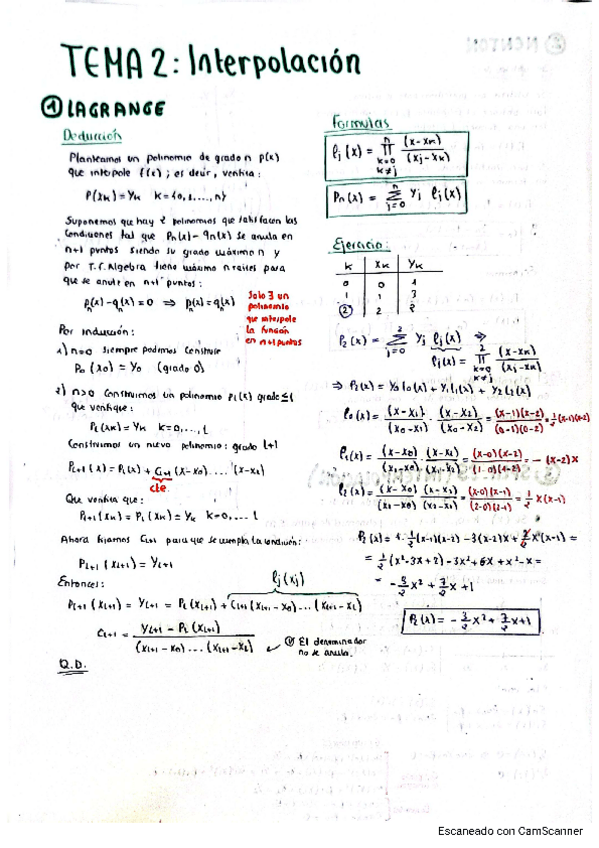 TEMA 2: Interpolación
① LAGRANGE
Deducción
Planteamos un polinomio de grado n p(x)
que interpole f(x); es decir, verifica:
P(xₖ) = yₖ k = {0, 1, ..., n}
Suponemos que hay 2 polinomios que satisfacen las
condiciones tal que Pₙ(x) - qₙ(x) se anula en
n+1 puntos siendo su grado máximo n y
por T.F. Algebra tiene máximo n raíces para
que se anule en n+1 puntos:
pₙ(x) - qₙ(x) = 0 ⇒ pₙ(x) = qₙ(x)
Solo ∃ un
polinomio
que interpole
la función
en n+1 puntos
Por inducción:
1) n=0 siempre podemos construir
Pₙ(x₀) = y₀ (grado 0)
2) n>0 Construimos un polinomio pₗ(x) grado ≤ l
que verifique:
Pₗ(xₖ) = yₖ k=0,...,l
Construimos un nuevo polinomio: grado l+1
Pₗ₊₁(x) = Pₗ(x) + Cₗ₊₁(x-x₀)....(x-xₗ)
cte.
Que verifica que:
Pₗ₊₁(xₖ) = Pₗ(xₖ) = yₖ k=0,....l
Ahora fijamos Cₗ₊₁ para que se cumpla la condición:
Pₗ₊₁(xₗ₊₁) = yₗ₊₁
Entonces:
ℓⱼ(xⱼ)
Pₗ₊₁(xₗ₊₁) = yₗ₊₁ = Pₗ(xₗ₊₁) + Cₗ₊₁(xₗ₊₁-x₀)...(xₗ₊₁-xₗ)
Cₗ₊₁ = yₗ₊₁ - Pₗ(xₗ₊₁) / (xₗ₊₁-x₀)...(xₗ₊₁-xₗ)
El denominador
no se anula.
Q.D.
Formulas
ℓⱼ(x) = ∏ⁿ k=0 k≠j (x-xₖ)/(xⱼ-xₖ)
Pₙ(x) = Σⁿ j=0 yⱼ ℓⱼ(x)
Ejercicio:
k xₖ yₖ
0 0 1
1 1 3
② 2 2
P₂(x) = Σ² j=0 yⱼ ℓⱼ(x) ⇒
ℓⱼ(x) = ∏² k=0 k≠j (x-xₖ)/(xⱼ-xₖ)
⇒ P₂(x) = y₀ℓ₀(x) + y₁ℓ₁(x) + y₂ℓ₂(x)
ℓ₀(x) = (x-x₁)/(x₀-x₁) · (x-x₂)/(x₀-x₂) = (x-1)(x-2)/(0-1)(0-2) = 1/2(x-1)(x-2)
ℓ₁(x) = (x-x₀)/(x₁-x₀) · (x-x₂)/(x₁-x₂) = (x-0)(x-2)/(1-0)(1-2) = -(x-2)x
ℓ₂(x) = (x-x₀)/(x₂-x₀) · (x-x₁)/(x₂-x₁) = (x-0)(x-1)/(2-0)(2-1) = 1/2 x(x-1)
P₂(x) = 1·1/2(x-1)(x-2) - 3(x-2)x + 2/2 x(x-1) =
= 1/2(x²-3x+2) - 3x² + 6x + x² - x =
= -3/2x² + 7/2x + 1
P₂(x) = -3/2x² + 7/2x + 1
Escaneado con CamScanner